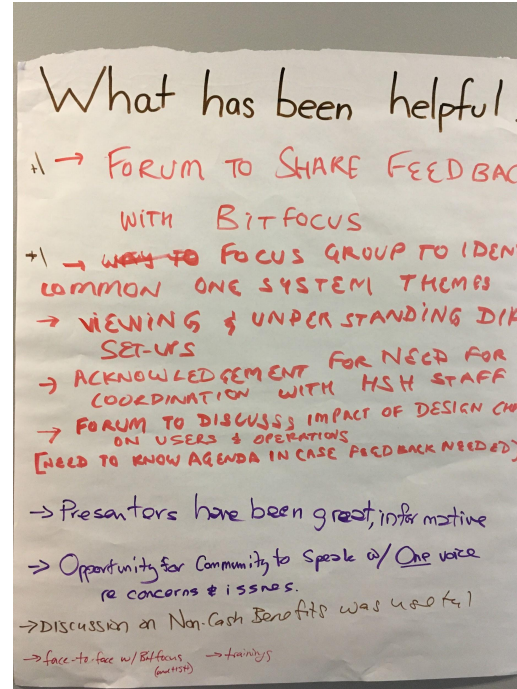 What has been helpful.
+1 → FORUM TO SHARE FEEDBAC
WITH BITFOCUS
+1 → WAY TO FOCUS GROUP TO IDEN
COMMON ONE SYSTEM THEMES
→ VIEWING & UNDERSTANDING DI
SET-UPS
→ ACKNOWLEDGEMENT FOR NEED FOR
COORDINATION WITH HSH STAFF
→ FORUM TO DISCUSSS IMPACT OF DESIGN CHA
ON USERS & OPERATIONS
[NEED TO KNOW AGENDA IN CASE FEEDBACK NEEDED]
→ Presenters have been great, informative
→ Opportunity for Community to Speak w/ One voice
re concerns & issues.
→ DISCUSSION on Non-Cash Benefits was useful
→ face-to-face w/ Bitfocus → trainings
(and HSH)